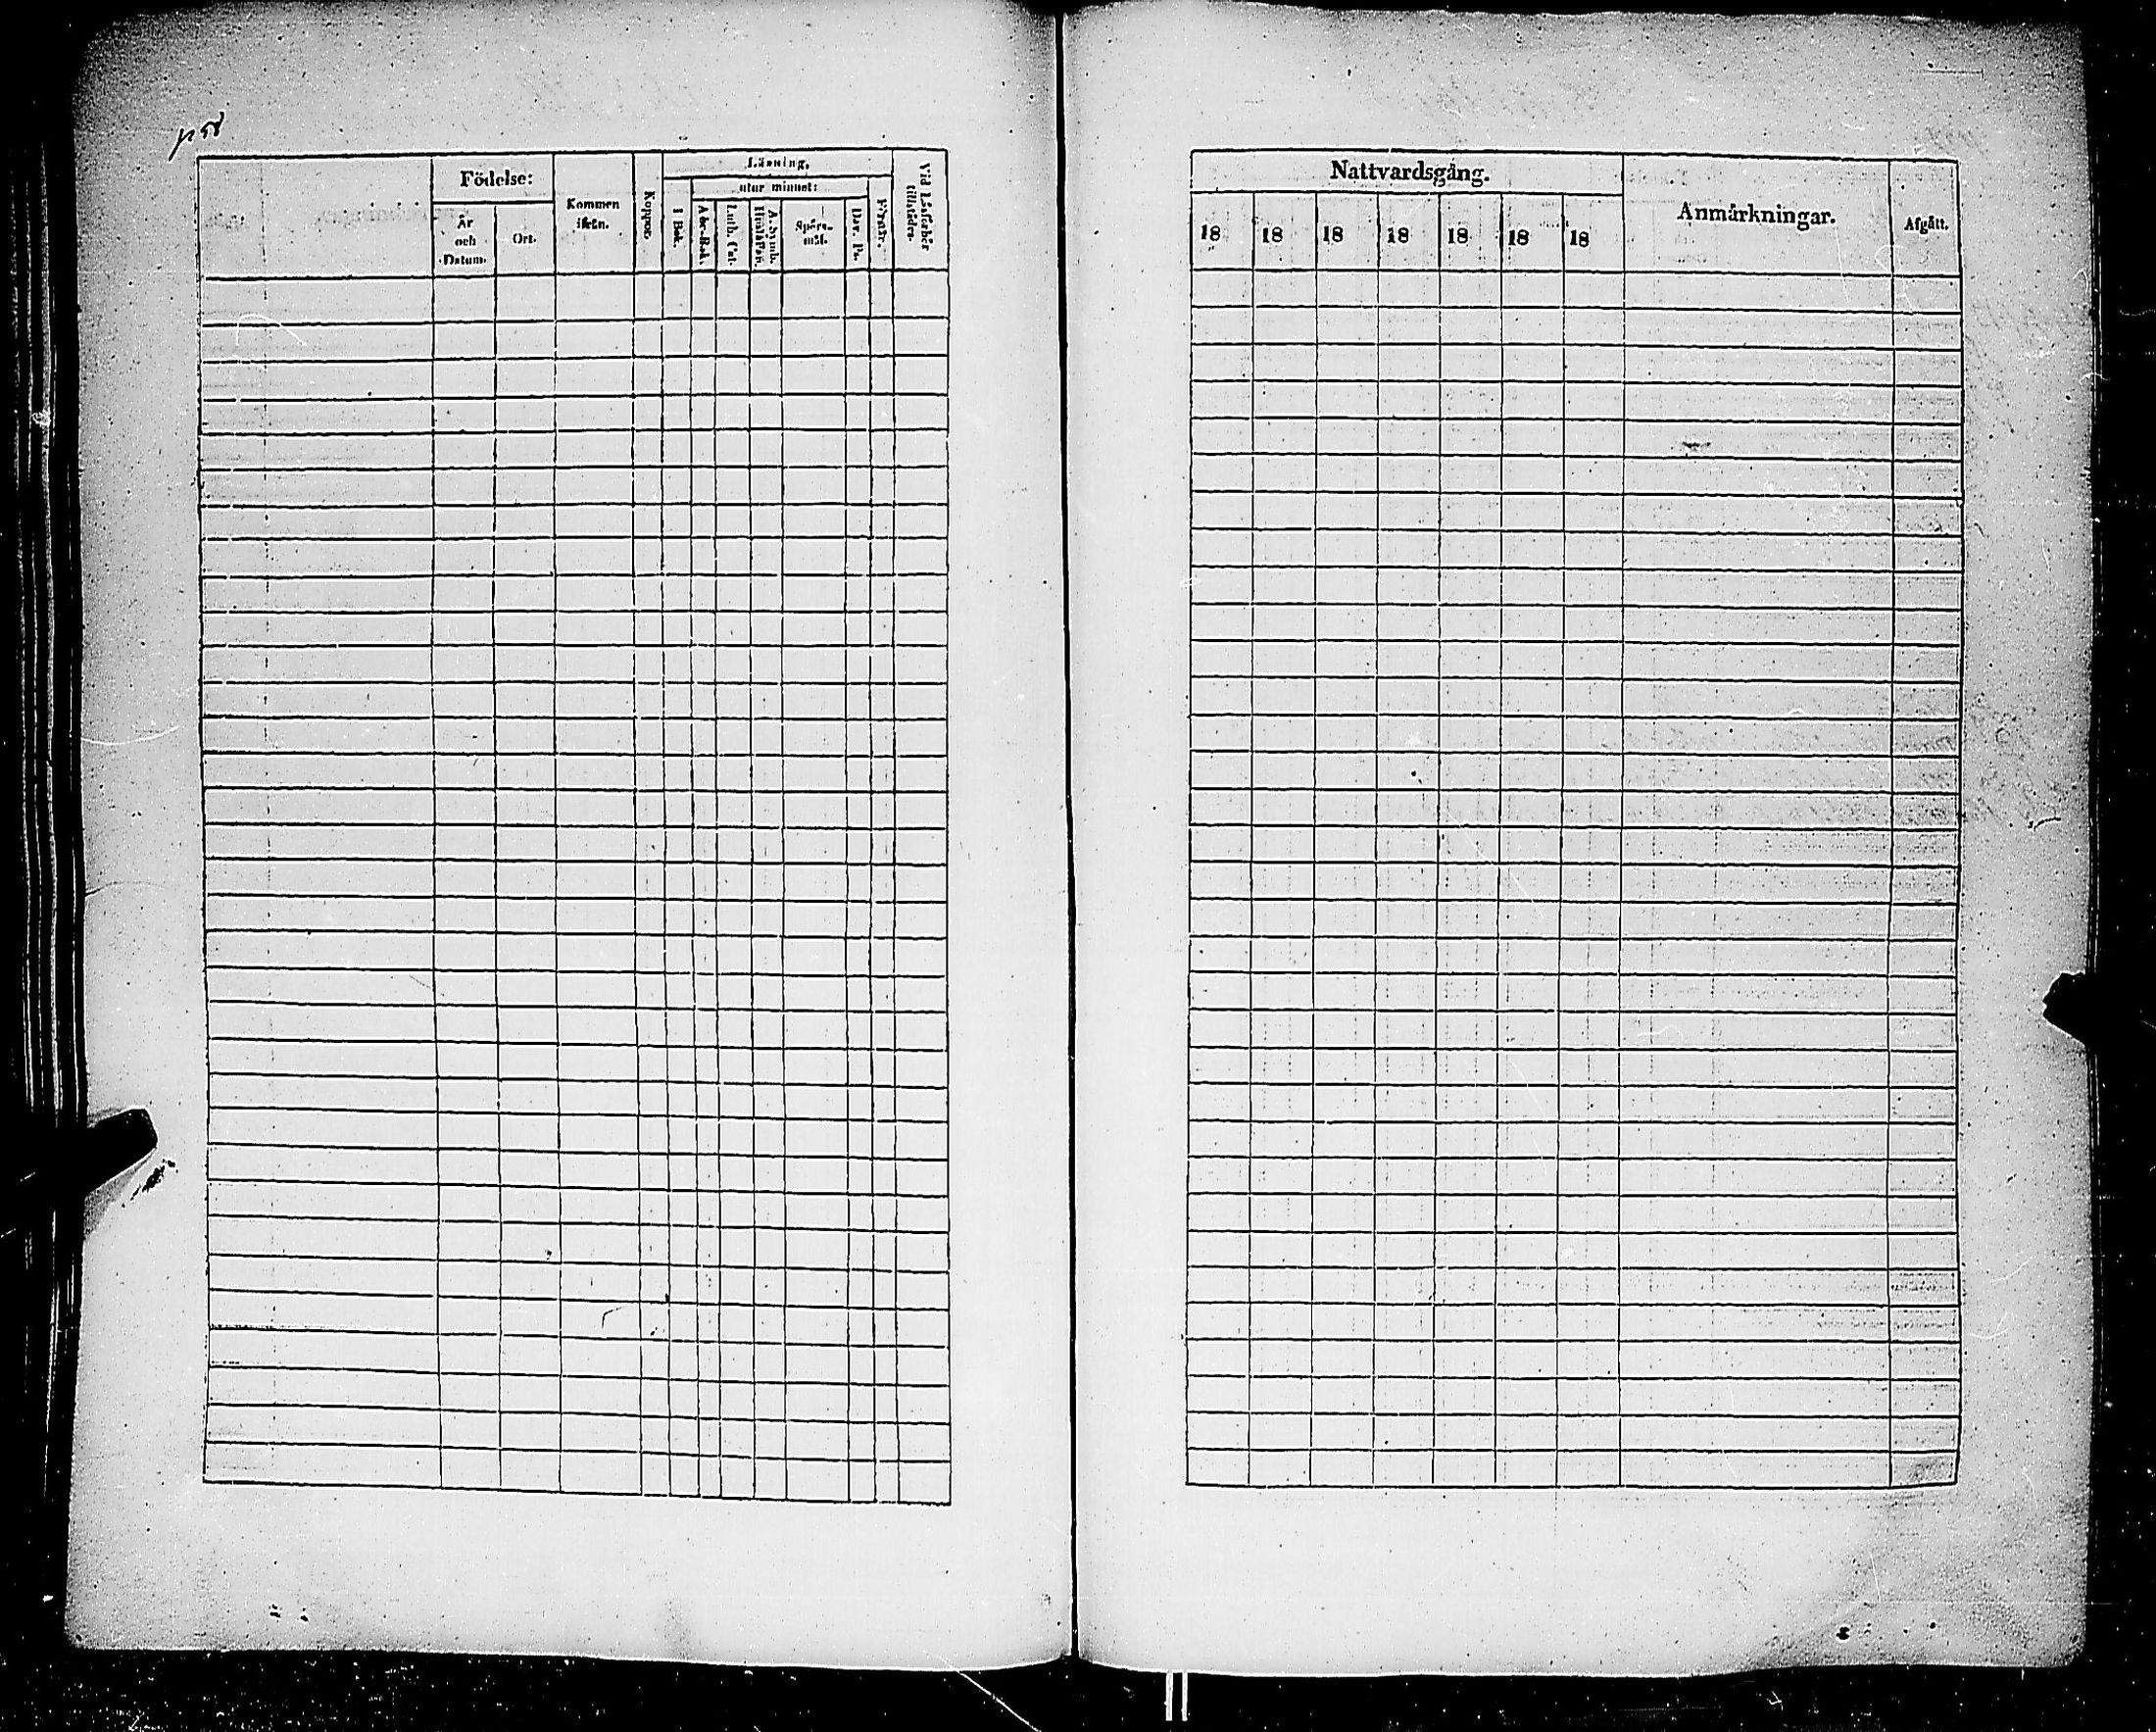 p. 58
Födelse:
År
och
Datum.
Ort.
Kommen
ifrån.
Koppor.
Läsning.
utur minnet:
I Bok.
Abc-Bok.
Luth. Cat.
A. Symb.
Hustaflan.
Spörs-
mål.
Dav. Ps.
Förstår.
Vid Läseförhör
tillstädes.
Nattvardsgång.
18 18 18 18 18 18 18
Anmärkningar.
Afgått.